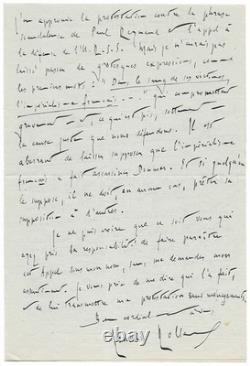 J'en approuve la protestation contre la phrase
scandaleuse de Paul Reynaud et l'appel à
la défense de l'U.R.S.S. Mais je n'aurais pas
laissé passer de grotesques expressions, comme
les premiers mots : "Dans le sang de ses victimes,
l'impérialisme français - - -". Cela compromet
gravement - et ce qui est pis, sottement -
la cause juste que nous défendons. Il est
aberrant de laisser supposer que l'impérialisme
français a fait assassiner Doumer. Et si quelqu'un
le suppose, il ne doit, en aucun cas, prêter sa
supposition à d'autres.
Je ne puis croire que ce soit vous qui
ayez pris la responsabilité de faire paraître
cet Appel sous mon nom, sans me demander mon
assentiment. Je vous prie de me dire qui l'a fait,
et de lui transmettre ma protestation sans ménagements.
Bien cordial. à vous
Romain Rolland
© with-art.com